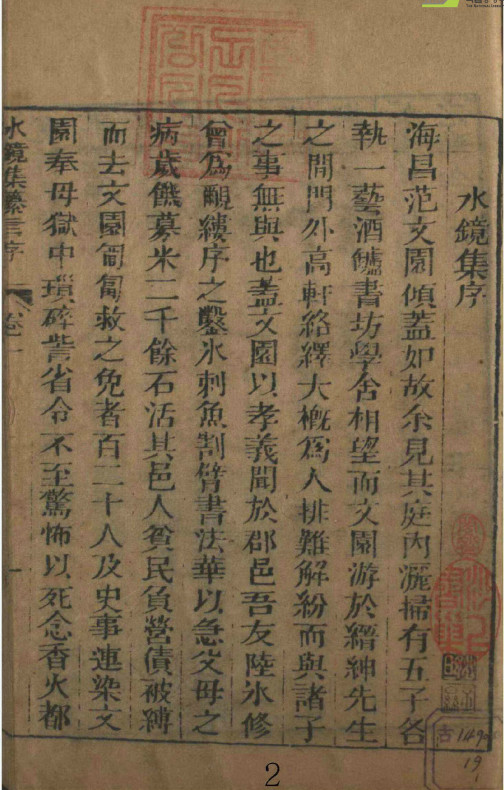 水鏡集序
海昌范文園傾蓋如故余見其庭內灑掃有五子各
執一藝酒鱸書坊學舍相望而文園游於縉紳先生
之間門外高軒絡繹大概爲人排難解紛而與諸子
之事無與也蓋文園以孝義聞於郡邑吾友陸氷修
曾爲覼縷序之鑿氷刺魚割臂書法華以急父母之
病歲饑募米二千餘石活其邑人貧民負營債被縛
而去文園匍匐救之免者百二十人及史事連染文
園奉母獄中瑣碎訾省令不至驚怖以死念香火都
水鏡集 序
卷一 一
古 1490
19
2